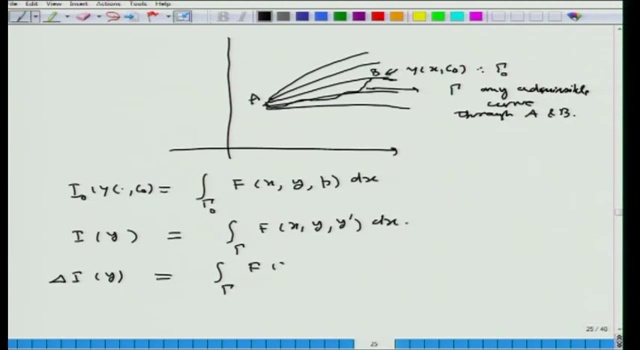 Edit View Insert Actions Tools Help
B y(x, c₀) : Γ₀
A
Γ any admissible
curve
through A & B.
I₀(y(·, c₀) = ∫_Γ₀ F(x, y, p) dx
I(y) = ∫_Γ F(x, y, y') dx.
ΔI(y) = ∫_Γ F(
25 / 40
25